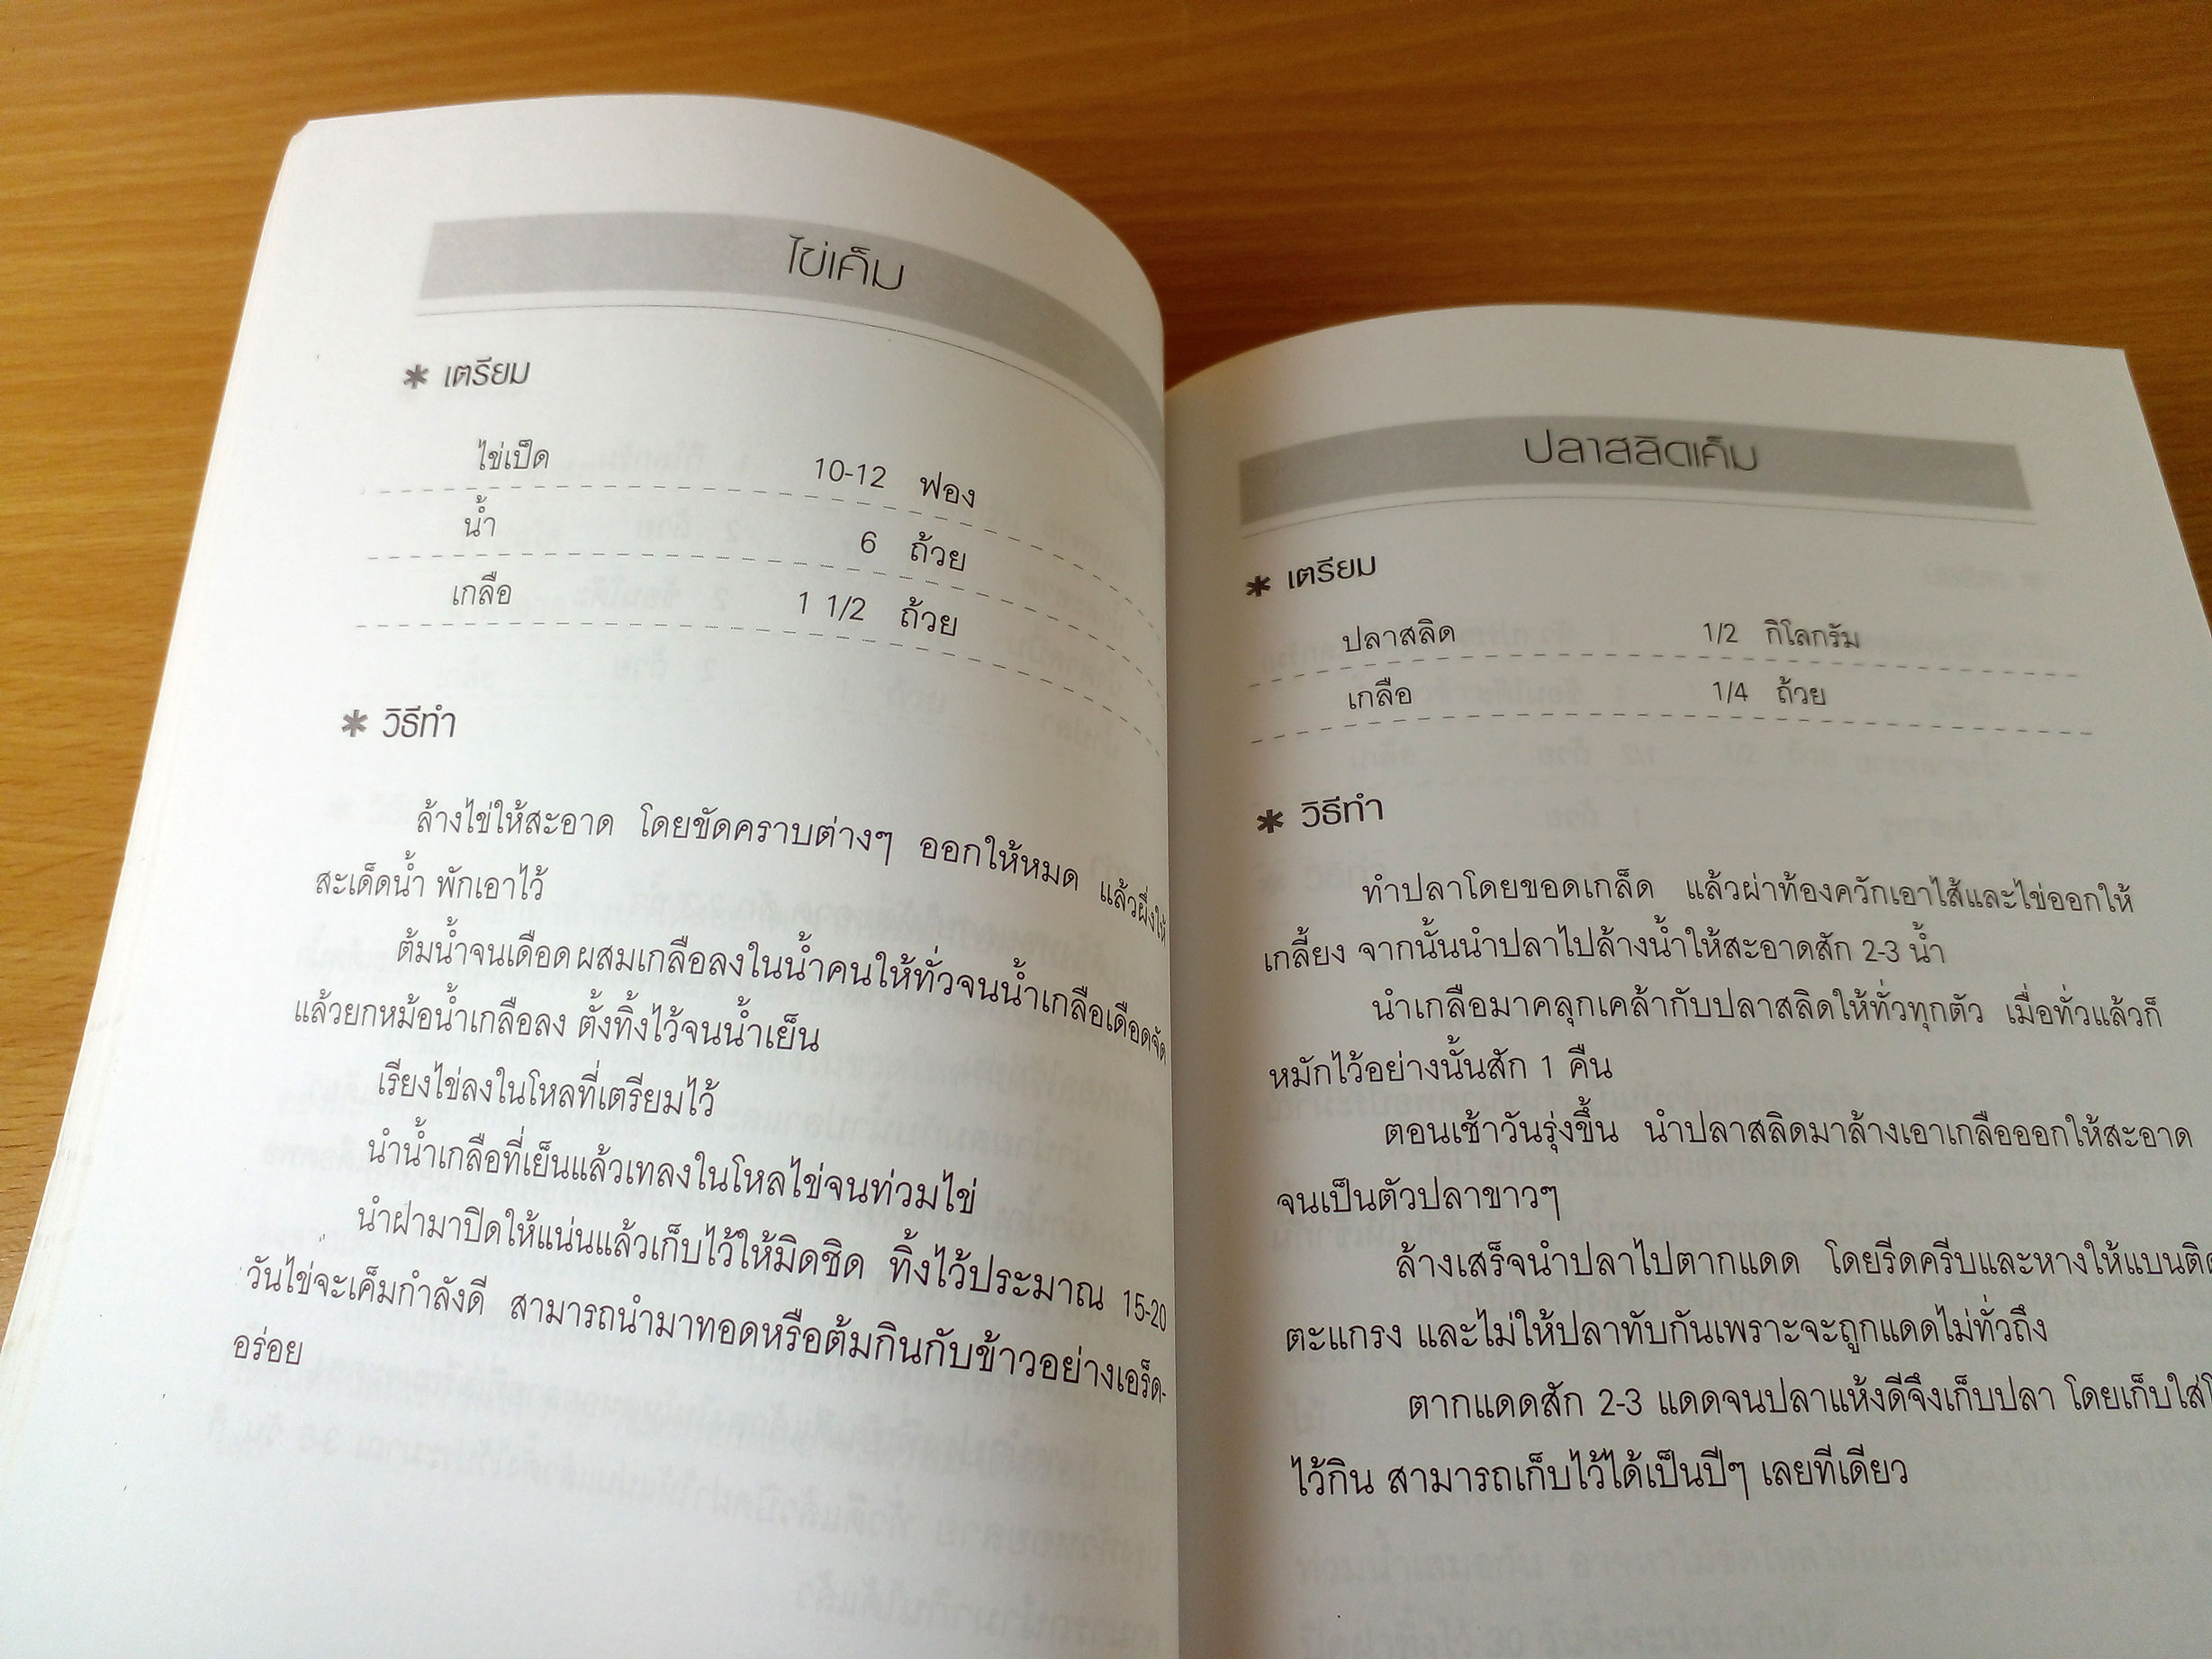 ไข่เค็ม
* เตรียม
ไข่เป็ด 10-12 ฟอง
น้ำ 6 ถ้วย
เกลือ 1 1/2 ถ้วย
* วิธีทำ
ล้างไข่ให้สะอาด โดยขัดคราบต่างๆ ออกให้หมด แล้วผึ่งให้
สะเด็ดน้ำ พักเอาไว้
ต้มน้ำจนเดือด ผสมเกลือลงในน้ำคนให้ทั่วจนน้ำเกลือเดือดจัด
แล้วยกหม้อน้ำเกลือลง ตั้งทิ้งไว้จนน้ำเย็น
เรียงไข่ลงในโหลที่เตรียมไว้
นำน้ำเกลือที่เย็นแล้วเทลงในโหลไข่จนท่วมไข่
นำฝามาปิดให้แน่นแล้วเก็บไว้ให้มิดชิด ทิ้งไว้ประมาณ 15-20
วันไข่จะเค็มกำลังดี สามารถนำมาทอดหรือต้มกินกับข้าวอย่างเอร็ด-
อร่อย
ปลาสลิดเค็ม
* เตรียม
ปลาสลิด 1/2 กิโลกรัม
เกลือ 1/4 ถ้วย
* วิธีทำ
ทำปลาโดยขอดเกล็ด แล้วผ่าท้องควักเอาไส้และไข่ออกให้
เกลี้ยง จากนั้นนำปลาไปล้างน้ำให้สะอาดสัก 2-3 น้ำ
นำเกลือมาคลุกเคล้ากับปลาสลิดให้ทั่วทุกตัว เมื่อทั่วแล้วก็
หมักไว้อย่างนั้นสัก 1 คืน
ตอนเช้าวันรุ่งขึ้น นำปลาสลิดมาล้างเอาเกลือออกให้สะอาด
จนเป็นตัวปลาขาวๆ
ล้างเสร็จนำปลาไปตากแดด โดยรีดครีบและหางให้แบนติด
ตะแกรง และไม่ให้ปลาทับกันเพราะจะถูกแดดไม่ทั่วถึง
ตากแดดสัก 2-3 แดดจนปลาแห้งดีจึงเก็บปลา โดยเก็บใส่
ไว้กิน สามารถเก็บไว้ได้เป็นปีๆ เลยทีเดียว